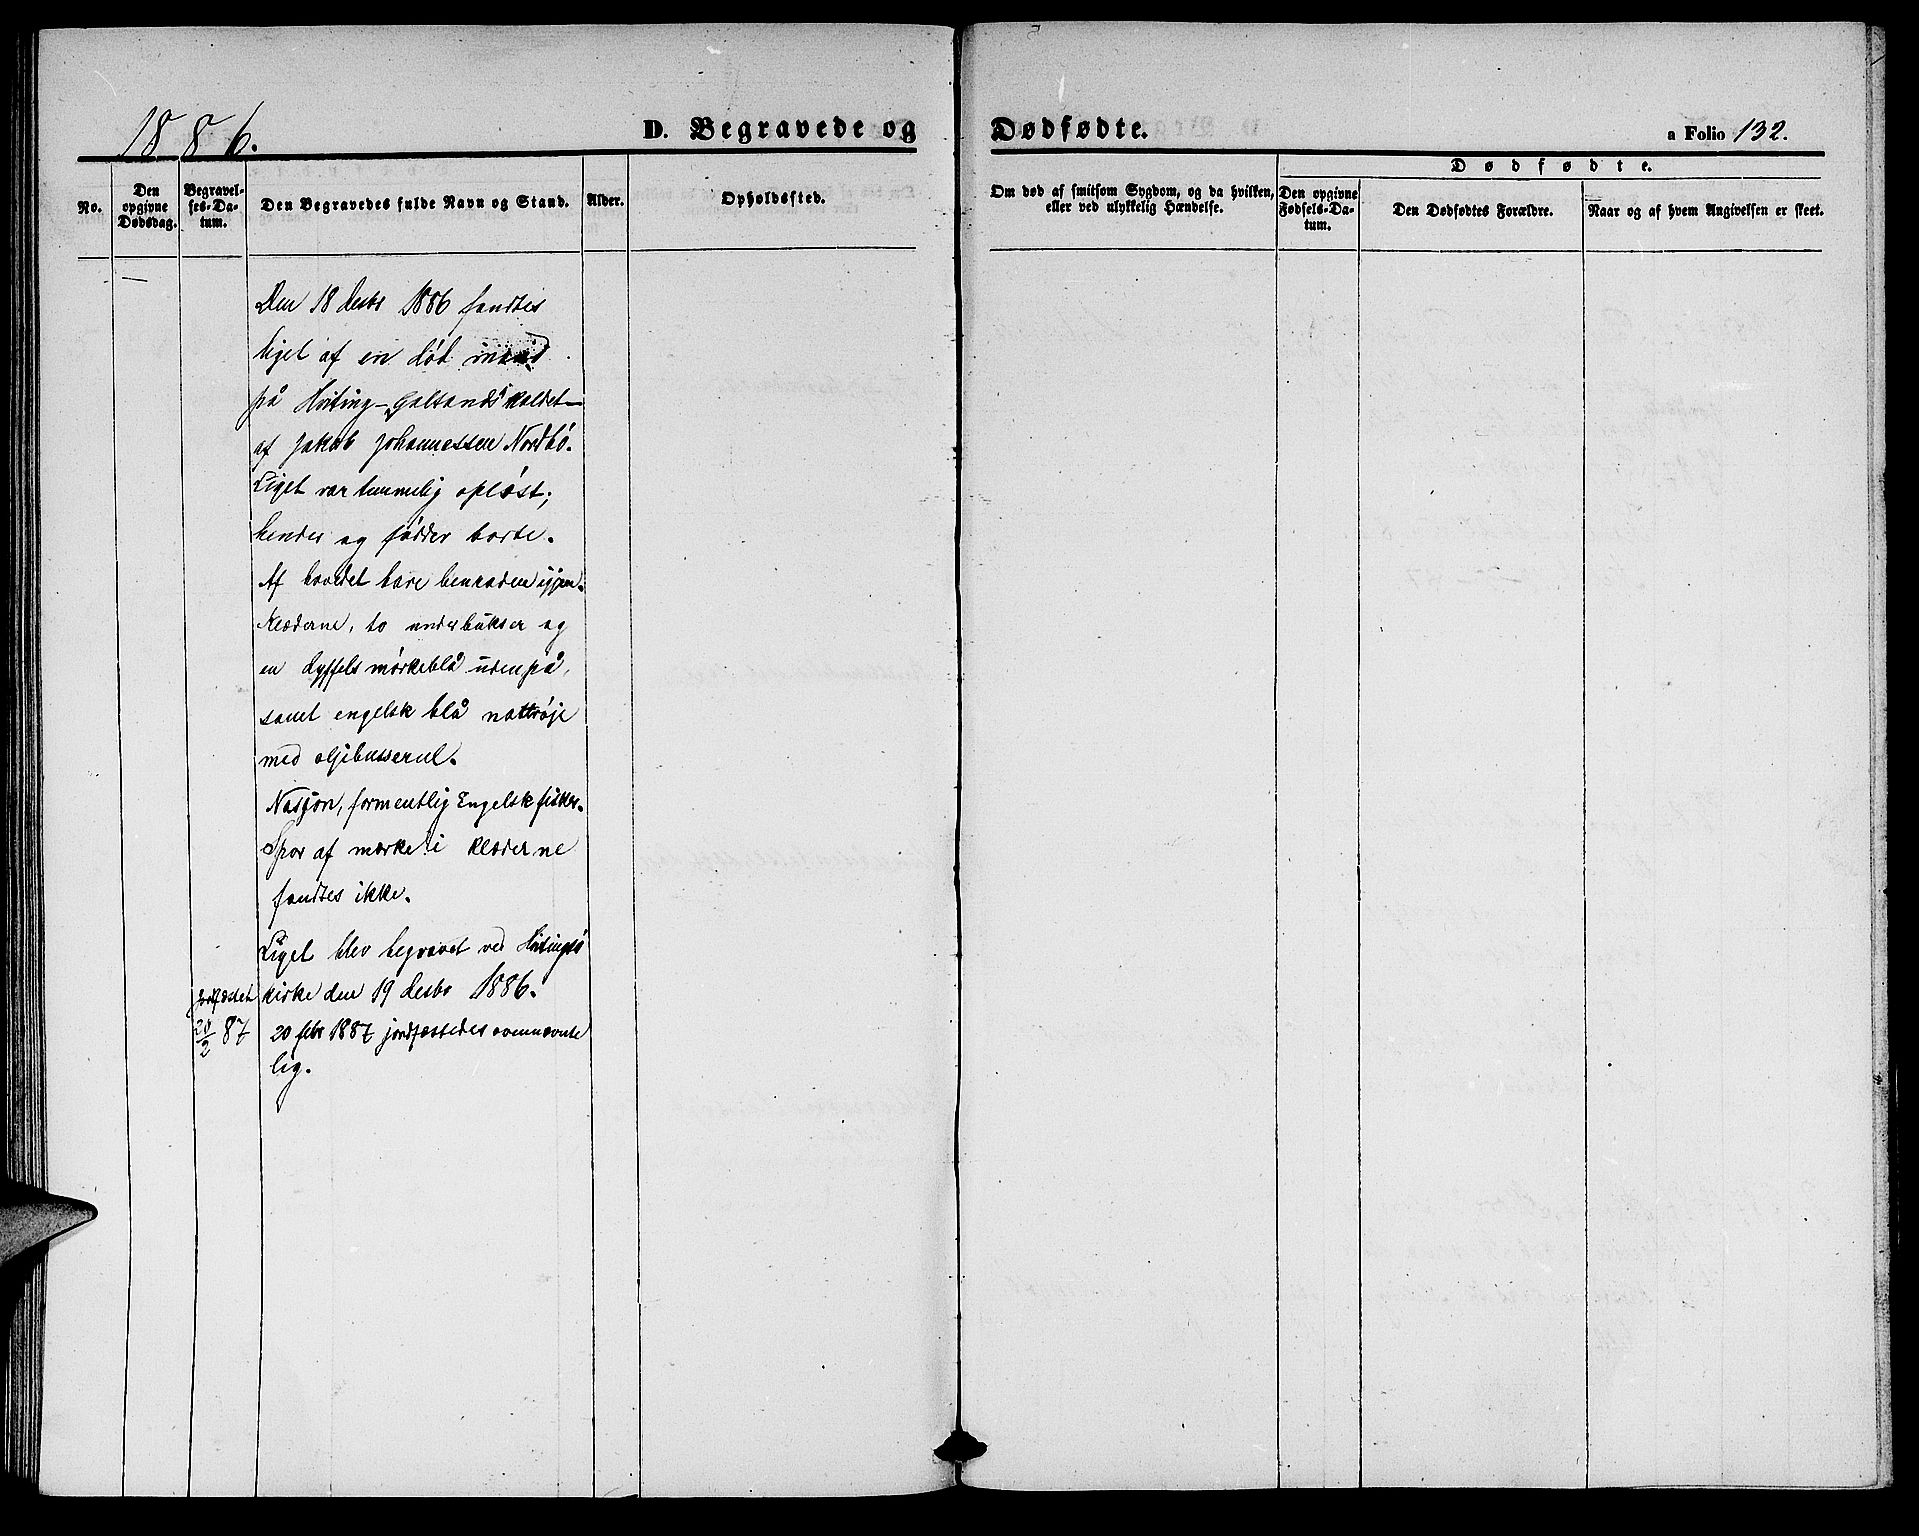 1886.
D. Begravede og
Dødfødte.
a Folio 132.
No.
Den opgivne Dødsdag.
Begravelses-Datum.
Den Begravedes fulde Navn og Stand.
Alder.
Opholdssted.
Om død af smitsom Sygdom, og da hvilken,
eller ved ulykkelig Hændelse.
Dødfødte.
Den opgivne Fødsels-Datum.
Den Dødfødtes Forældre.
Naar og af hvem Angivelsen er skeet.
Den 18 desbr 1886 fandtes
liget af en død mand
på Hviting-"Galtands" kaldet-
af Jakob Johannessen Nordbö.
Liget var temmelig opløst;
hender og födder borte.
Af hovedet bare benraden igjen.
Klæderne, to underbukser og
en dyffels mørkeblå udenpå,
samt engelsk blå nattrøje
med oljebusserul.
Nasjon, formentlig Engelsk fisker.
Spor af mærke i klæderne
fandtes ikke.
Liget blev begravet ved Hvitingsö
kirke den 19 desbr 1886.
jordfæstet
20/2 87
20 febr 1887 jordfæstedes ovennævnte
lig.